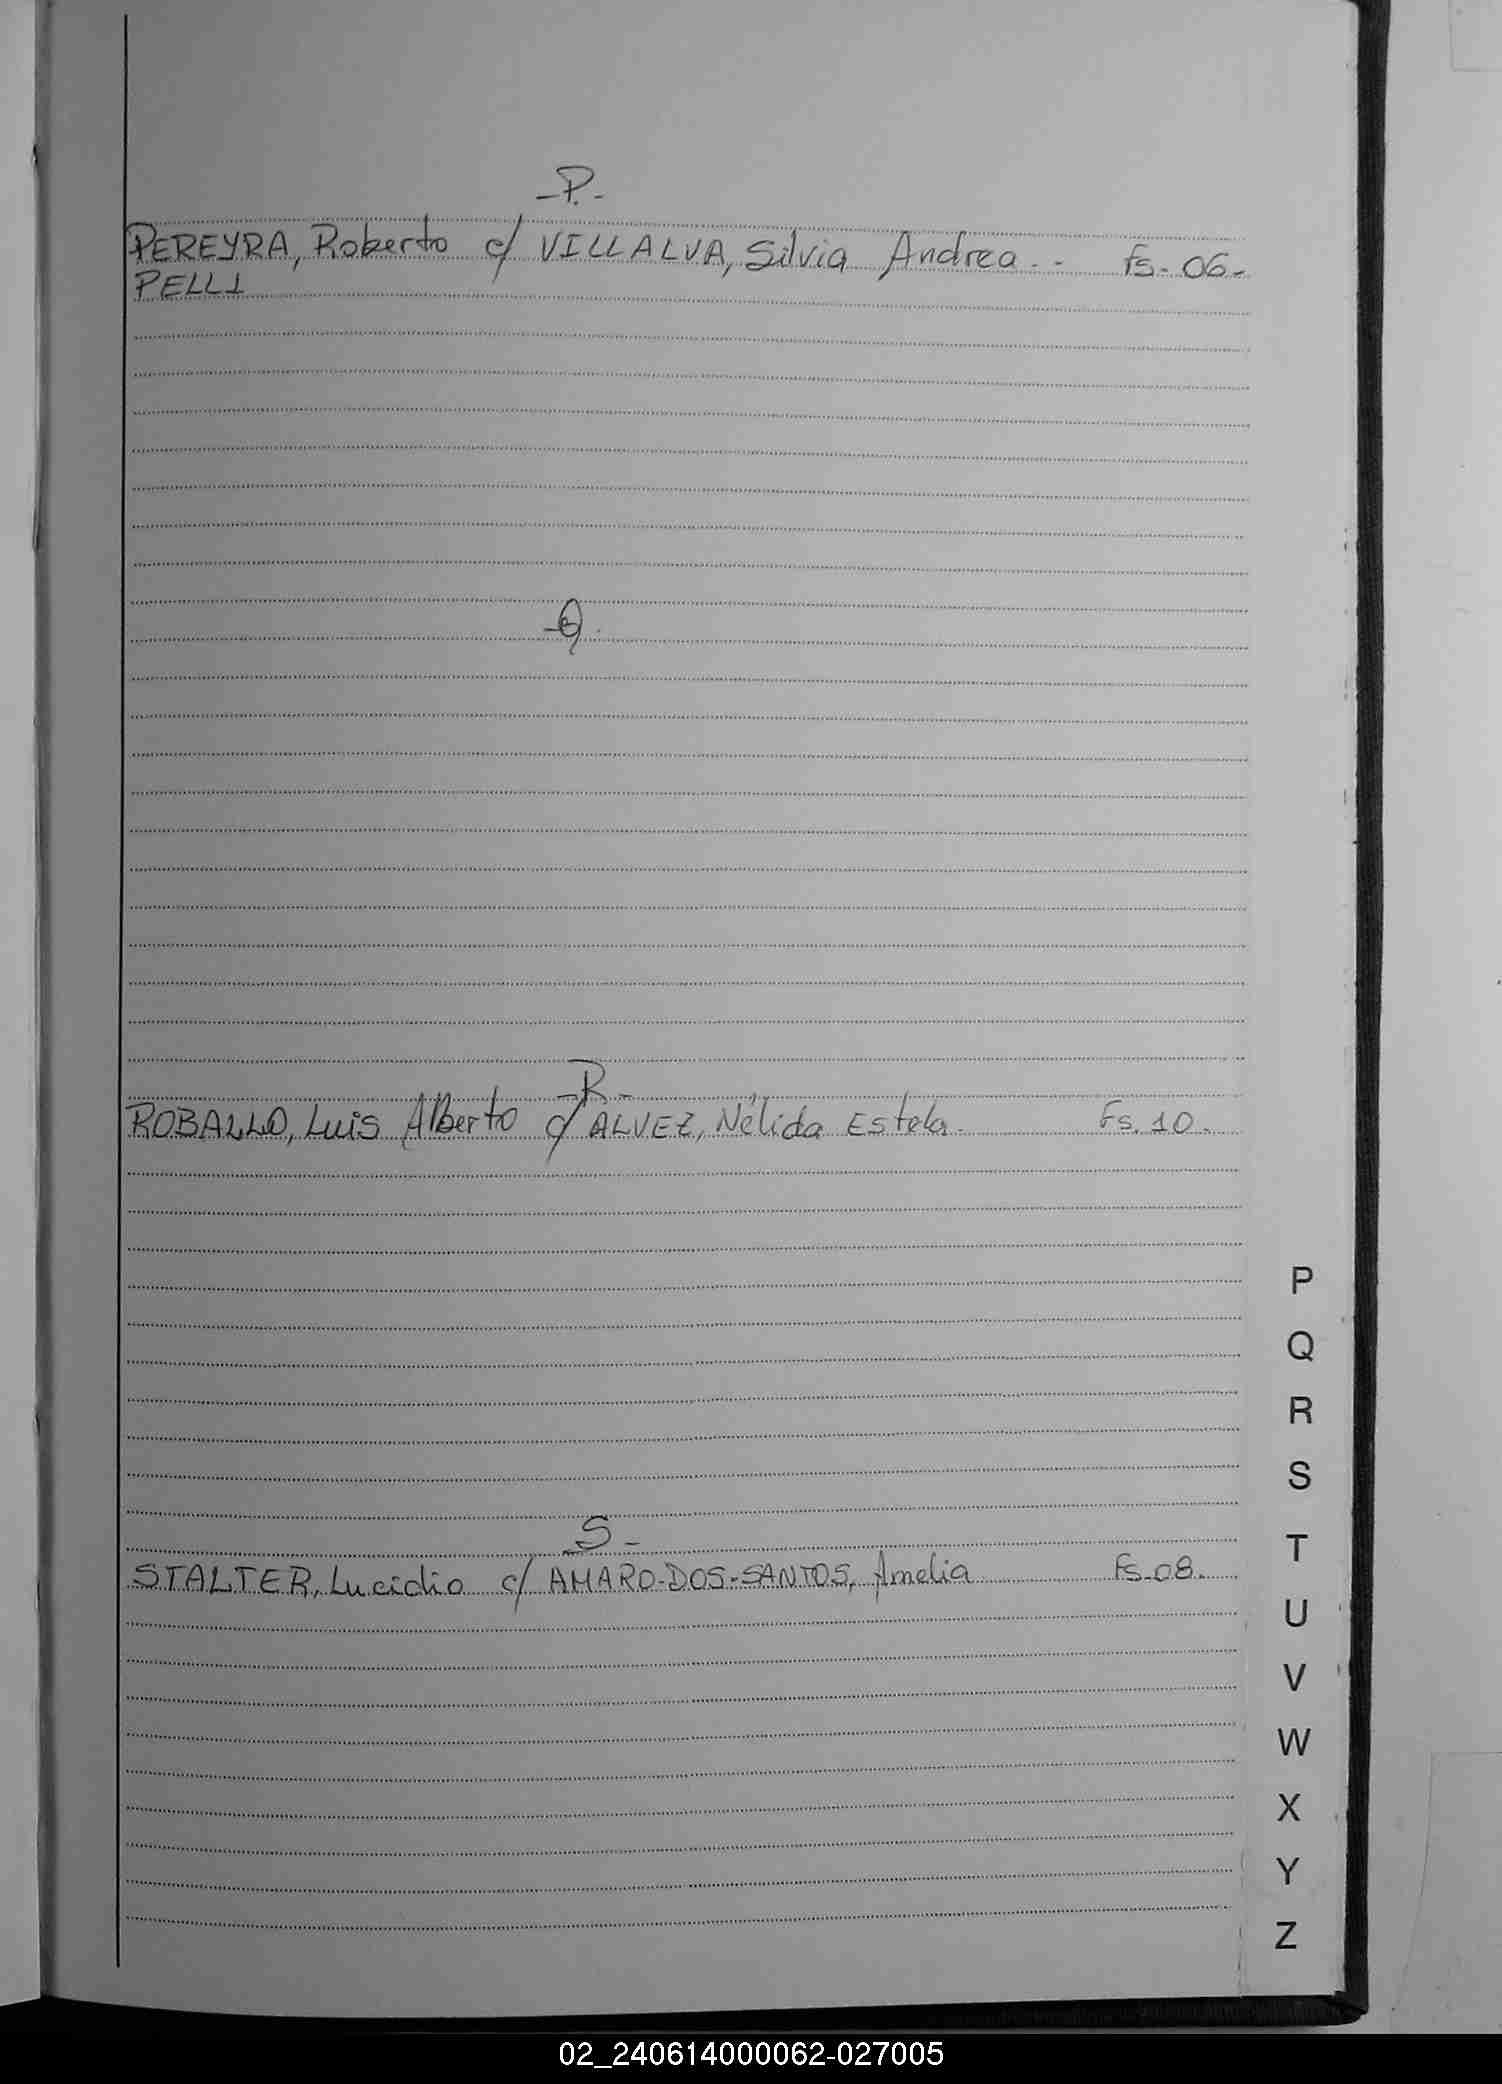 -P.-
PEREYRA, Roberto c/ VILLALVA, Silvia Andrea.- Fs. 06.-
PELLI
-Q.
-R-
ROBALLO, Luis Alberto c/ ALVEZ, Nélida Estela. Fs. 10.
S-
STALTER, Lucidio c/ AMARO-DOS-SANTOS, Amelia Fs. 08.
P
Q
R
S
T
U
V
W
X
Y
Z
02_240614000062-027005